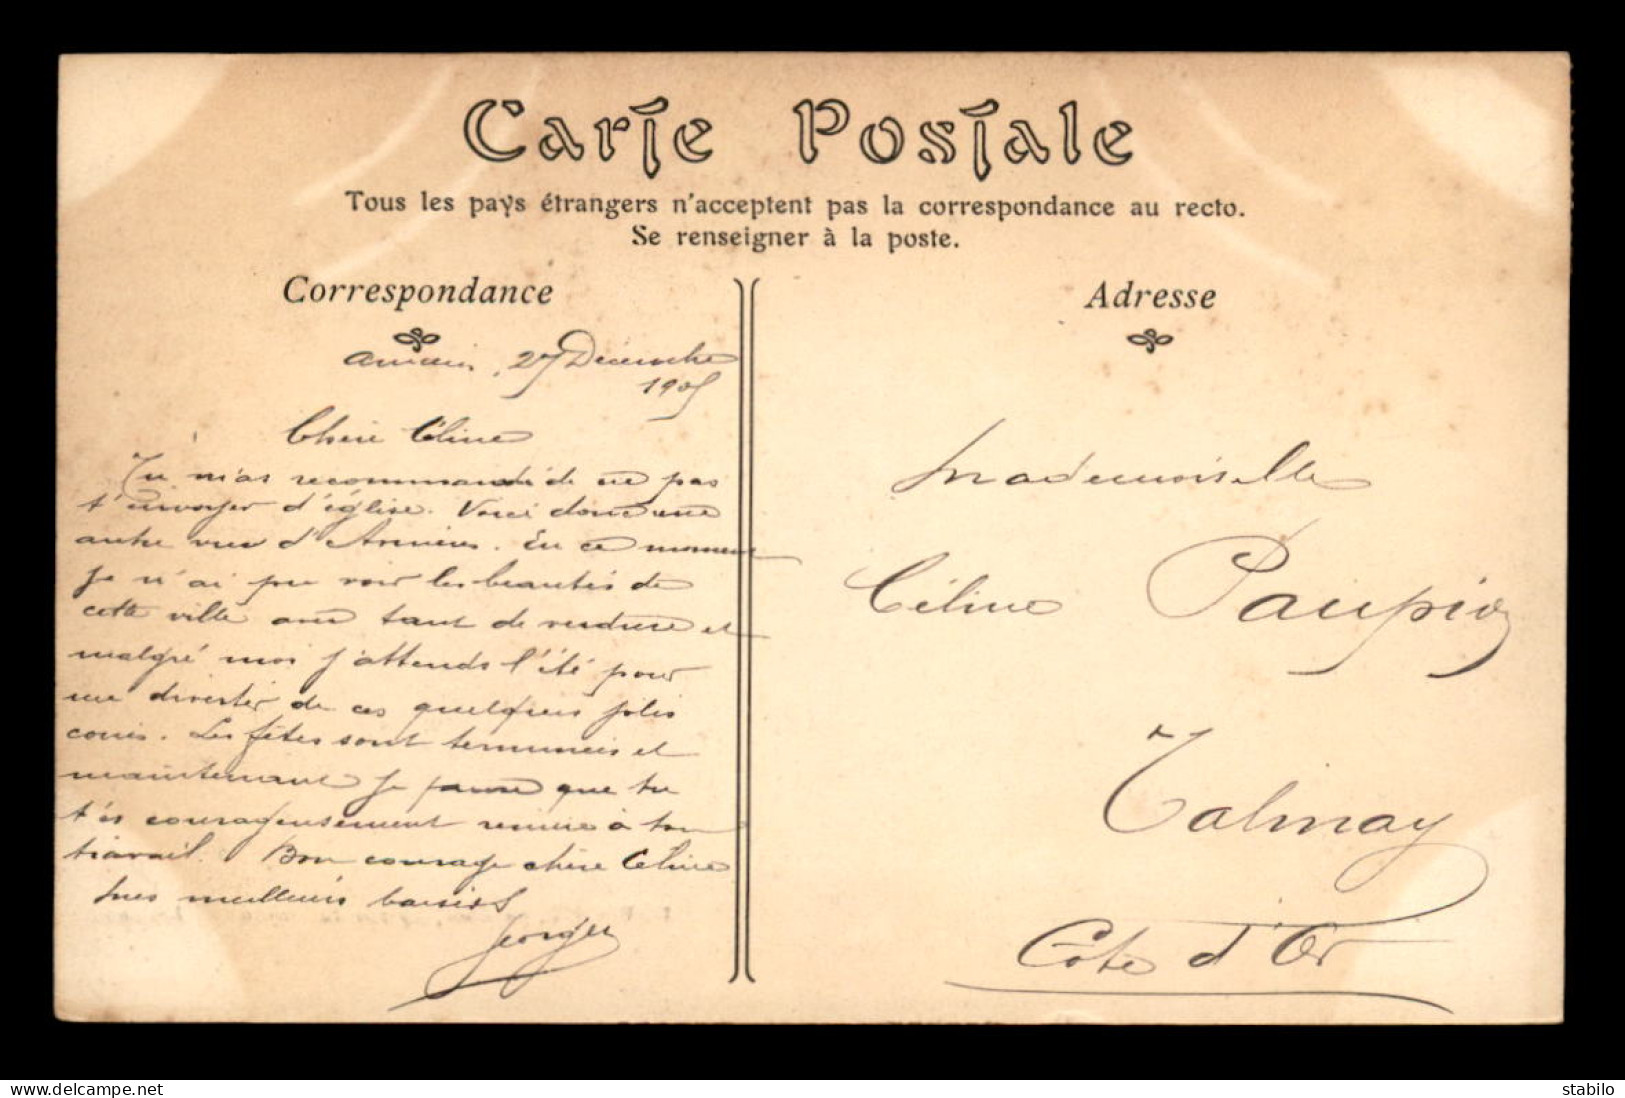 Carte Postale
Tous les pays étrangers n'acceptent pas la correspondance au recto.
Se renseigner à la poste.
Correspondance
27 Décembre
1905
Chère Céline
Tu m'as recommandé de ne pas
t'envoyer d'église. Voici donc une
autre vue d'Asnières. En ce moment
je n'ai pu voir les beautés de
cette ville avec tant de verdure et
malgré moi j'attends l'été pour
me divertir de ces quelques jolis
coins. Les fêtes sont terminées et
maintenant je pense que tu
t'es courageusement remise à ton
travail. Bon courage chère Céline
mes meilleurs baisers
Georges
Adresse
Mademoiselle
Céline Paupion
Talmay
Côte d'Or
delcampe.net
stabilo